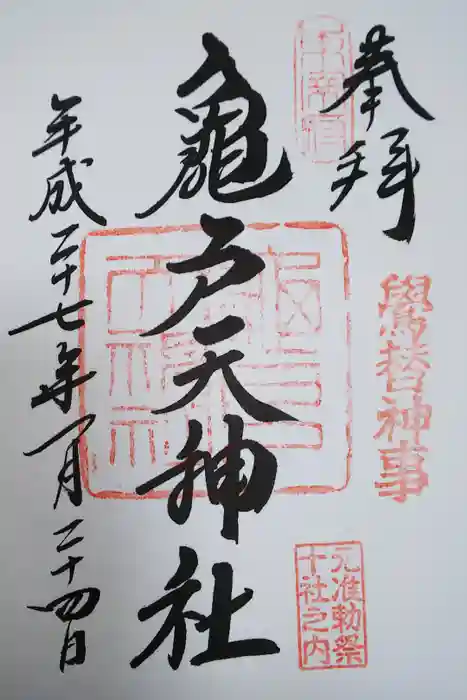 奉拝
鷽替神事
元准勅祭
十社之内
龜戸天神社
平成二十七年一月二十四日